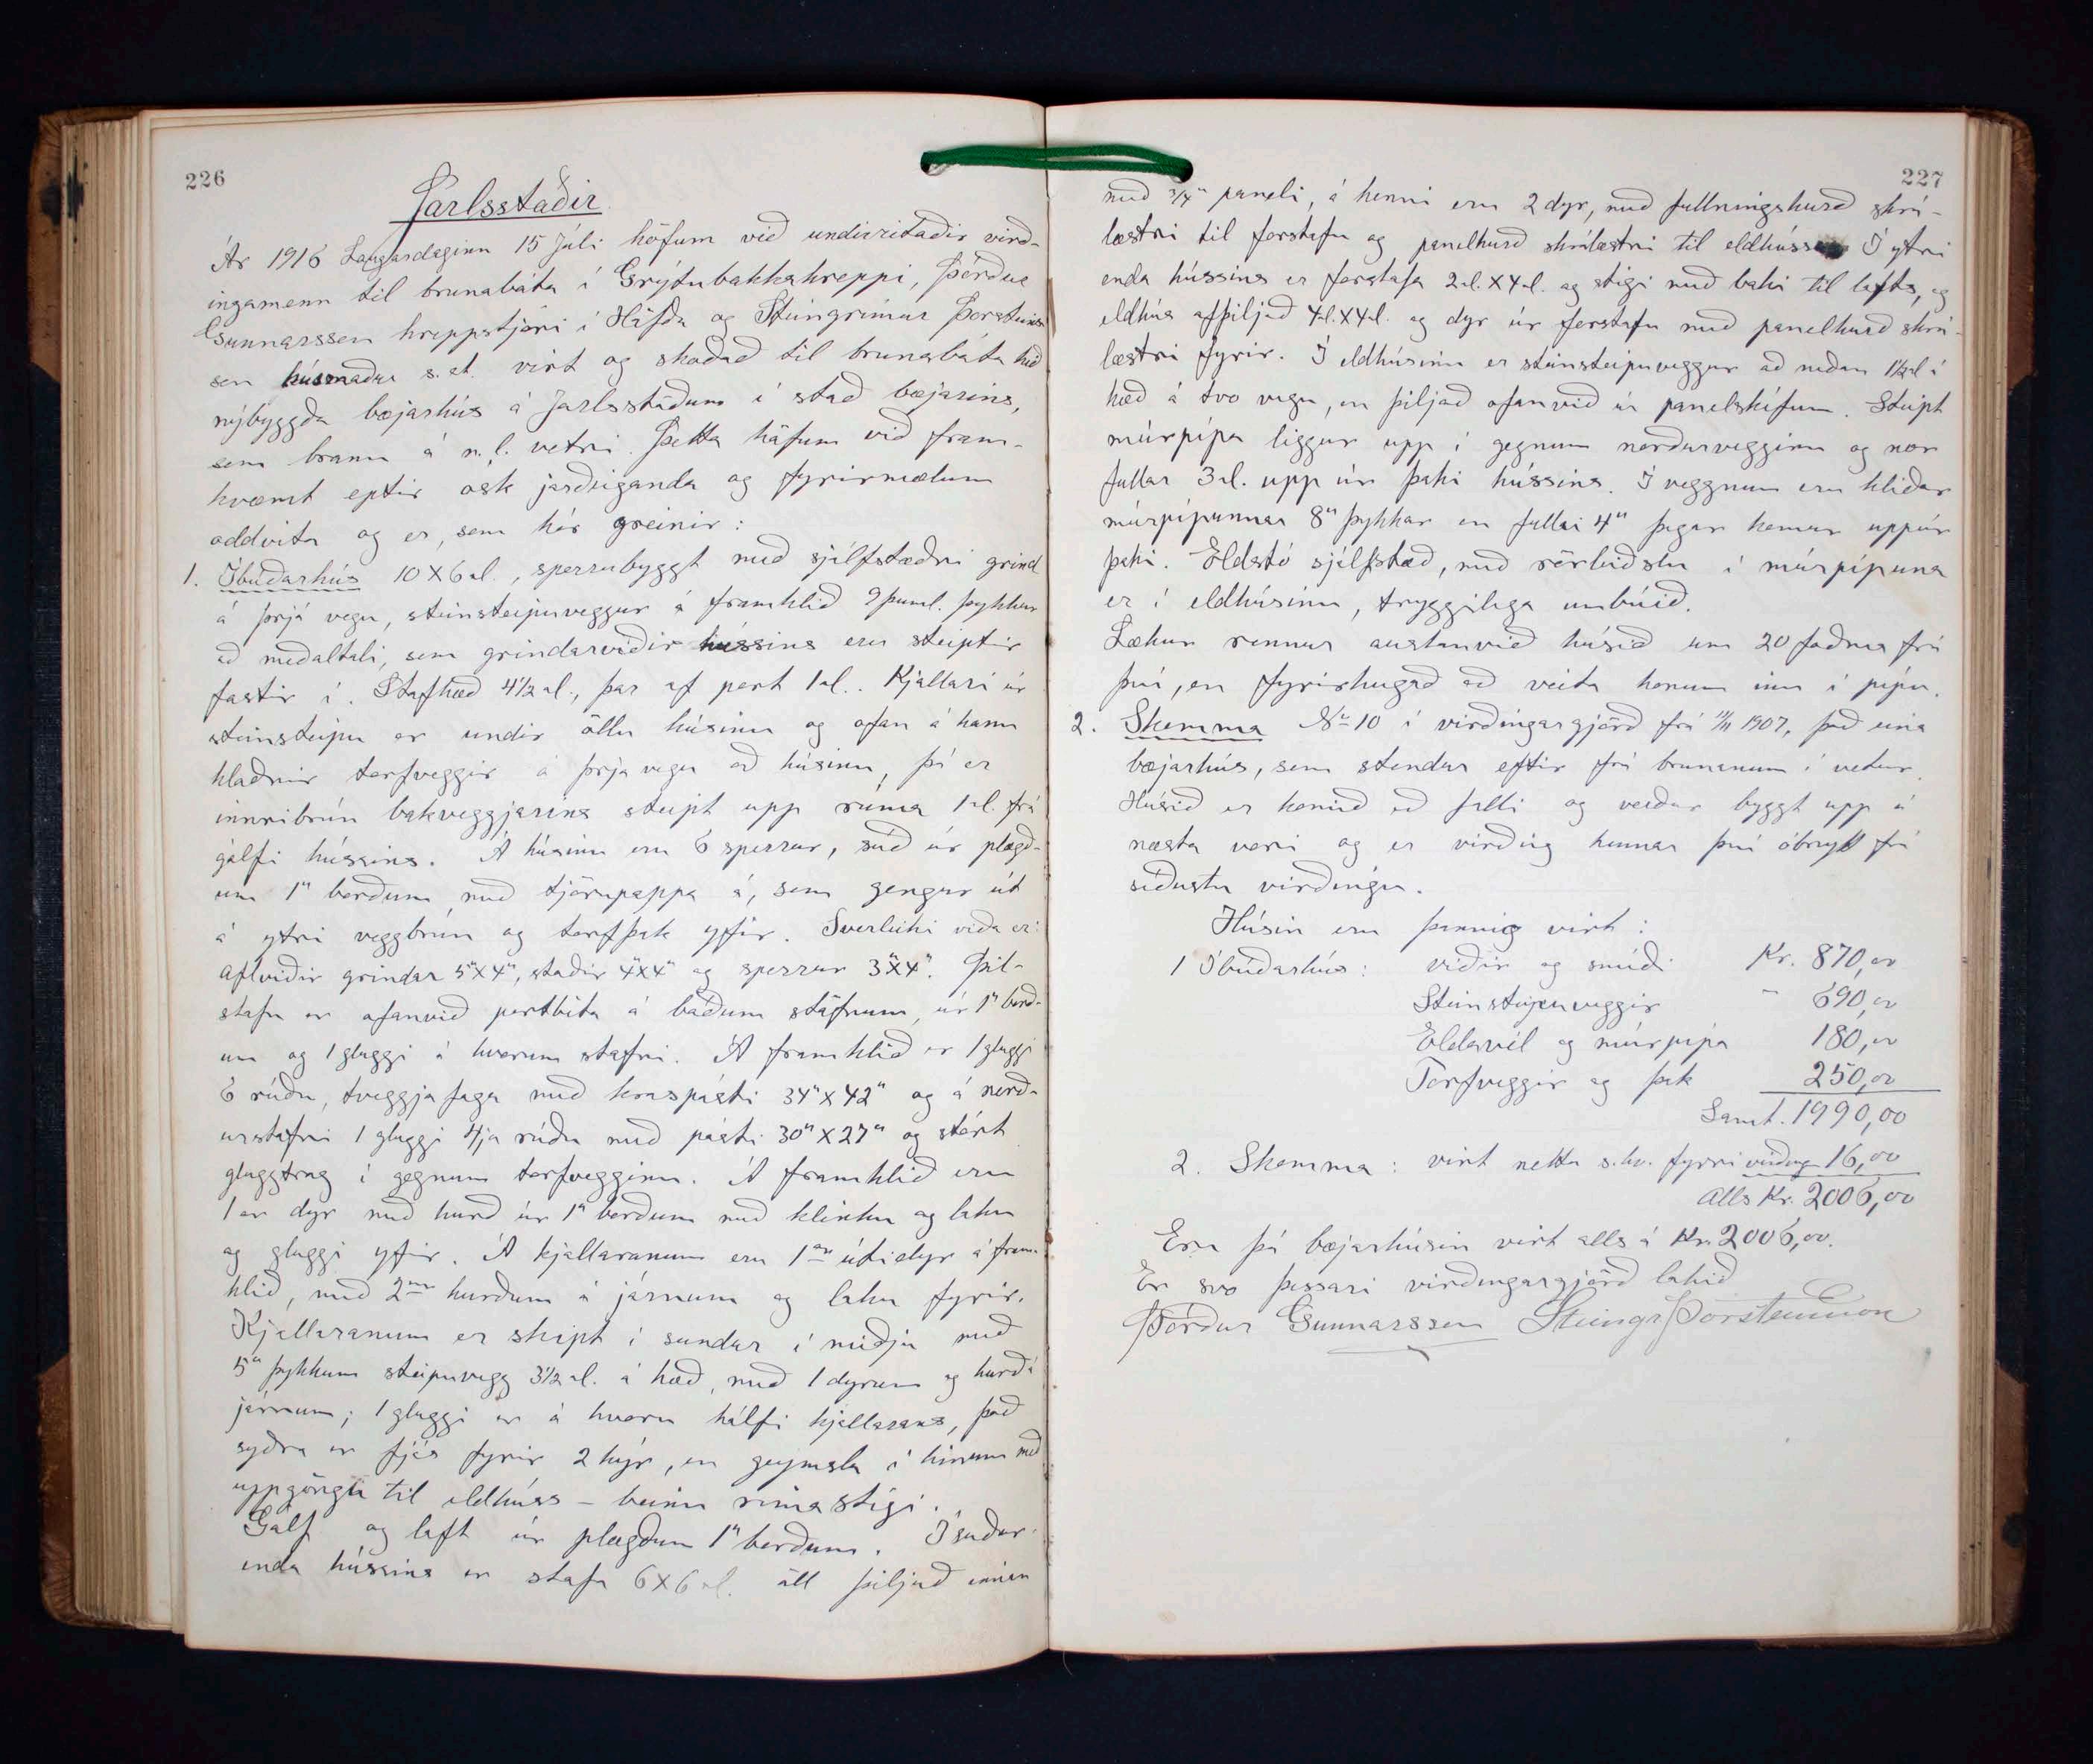 226
Jarlsstaðir
Ár 1916 Laugardaginn 15 Júlí höfum við undirritaðir virð-
ingamenn til brunabóta í Grýtubakkahreppi, Þórður
Gunnarsson hreppstjóri í Höfða og Steingrímur Þorsteins
son húsmaður s.st. virt og skoðað til brunabóta hið
nýbyggða bæjarhús á Jarlsstöðum í stað bæjarins,
sem brann á n.l. vetri. Þetta höfum við fram-
kvæmt eptir ósk jarðeiganda og fyrirmælum
oddvita og er, sem hér greinir:
1. Íbúðarhús 10 X 6 al., sperrubyggt með sjálfstæðri grind
á þrjá vegu, steinsteipuveggur á framhlið 9 þuml. þykkur
að meðaltali, sem grindarviðir hússins eru steiptir
fastir í. Stafhæð 4 1/2 al., þar af port 1 al.. Kjallari úr
steinsteipu er undir öllu húsinu og ofan á hann
hlaðnir torfveggir á þrjá vegu að húsinu, þó er
innribrún bakveggjarins steipt upp rúma 1 al. frá
gólfi hússins. Á húsinu eru 6 sperrur, súð úr plægð-
um 1" borðum með tjörupappa á, sem gengur út
á ytri veggbrún og torfþak yfir. Sverleiki viða er:
aflviðir grindar 5"X4", stoðir 4"x4" og sperrur 3"X4". Þil-
stafn er ofanvið portbita á báðum stöfnum, úr 1" borð-
um og 1 gluggi á hvorum stafni. Á framhlið er 1 gluggi
6 rúðu, tveggja faga með krosspósti 34"X42" og á norð-
urstafni 1 gluggi 4ja rúðu með pósti 30"X27" og stórt
gluggtrog í gegnum torfvegginn. Á framhlið eru
1ar dyr með hurð úr 1" borðum með klinku og loku
og gluggi yfir. Á kjallaranum eru 1ar útidyr á fram-
hlið, með 2ur hurðum á járnum og loku fyrir.
Kjallaranum er skipt í sundur í miðju með
5" þykkum steipuvegg 3 1/2 al. á hæð, með 1 dyrum og hurð á
járnum; 1 gluggi er á hvoru hólfi kjallarans, það
syðra er fjós fyrir 2 kýr, en geymsla í hinum með
uppgöngu til eldhúss - beinn rimastigi.
Gólf og loft úr plægðum 1" borðum. Í suður-
enda hússins er stofa 6X6 al. öll þiljuð innan
227
með 3/4" paneli, á henni eru 2 dyr, með fullningshurð skrá-
læstri til forstofu og panelhurð skrálæstri til eldhúss Í ytri
enda hússins er forstofa 2 al. X 4 al. og stigi með baki til lofts, og
eldhús afþiljað 4 al. X 4 al. og dyr úr forstofu með panelhurð skrá-
læstri fyrir. Í eldhúsinu er steinsteipuveggur að neðan 1 1/2 al á
hæð á tvo vegu, en þiljað ofanvið úr panelskífum. Steipt
múrpípa liggur upp í gegnum norðurvegginn og nær
fullar 3 al. upp úr þaki hússins. Í veggnum eru hliðar
múrpípunnar 8" þykkar en fullar 4" þegar kemur uppúr
þaki. Eldstó sjálfstæð, með rörleiðslu í múrpípuna
er í eldhúsinu, tryggilega umbúið.
Lækur rennur austanvið húsið um 20 faðma frá
því, en fyrirhugað að veita honum inn í pípu.
2. Skemma No 10 í virðingargjörð frá 1907, það eina
bæjarhús, sem stendur eftir frá brunanum í vetur.
Húsið er komið að falli og verður byggt upp á
næsta vori og er virðing hennar því óbreytt frá
síðustu virðingu.
Húsin eru þannig virt:
1 Íbúðarhús: viðir og smíði Kr. 870,00
Steinsteipuveggir " 690,00
Eldavél og múrpípa 180,00
Torfveggir og þak 250,00
Samt. 1990,00
2. Skemma: virt netto s.kv. fyrri virðingu 16,00
Alls Kr. 2006,00
Eru þá bæjarhúsin virt alls á Kr. 2006,00.
Er svo þessari virðingargjörð lokið
Þórður Gunnarsson Steingr Þorsteinsson